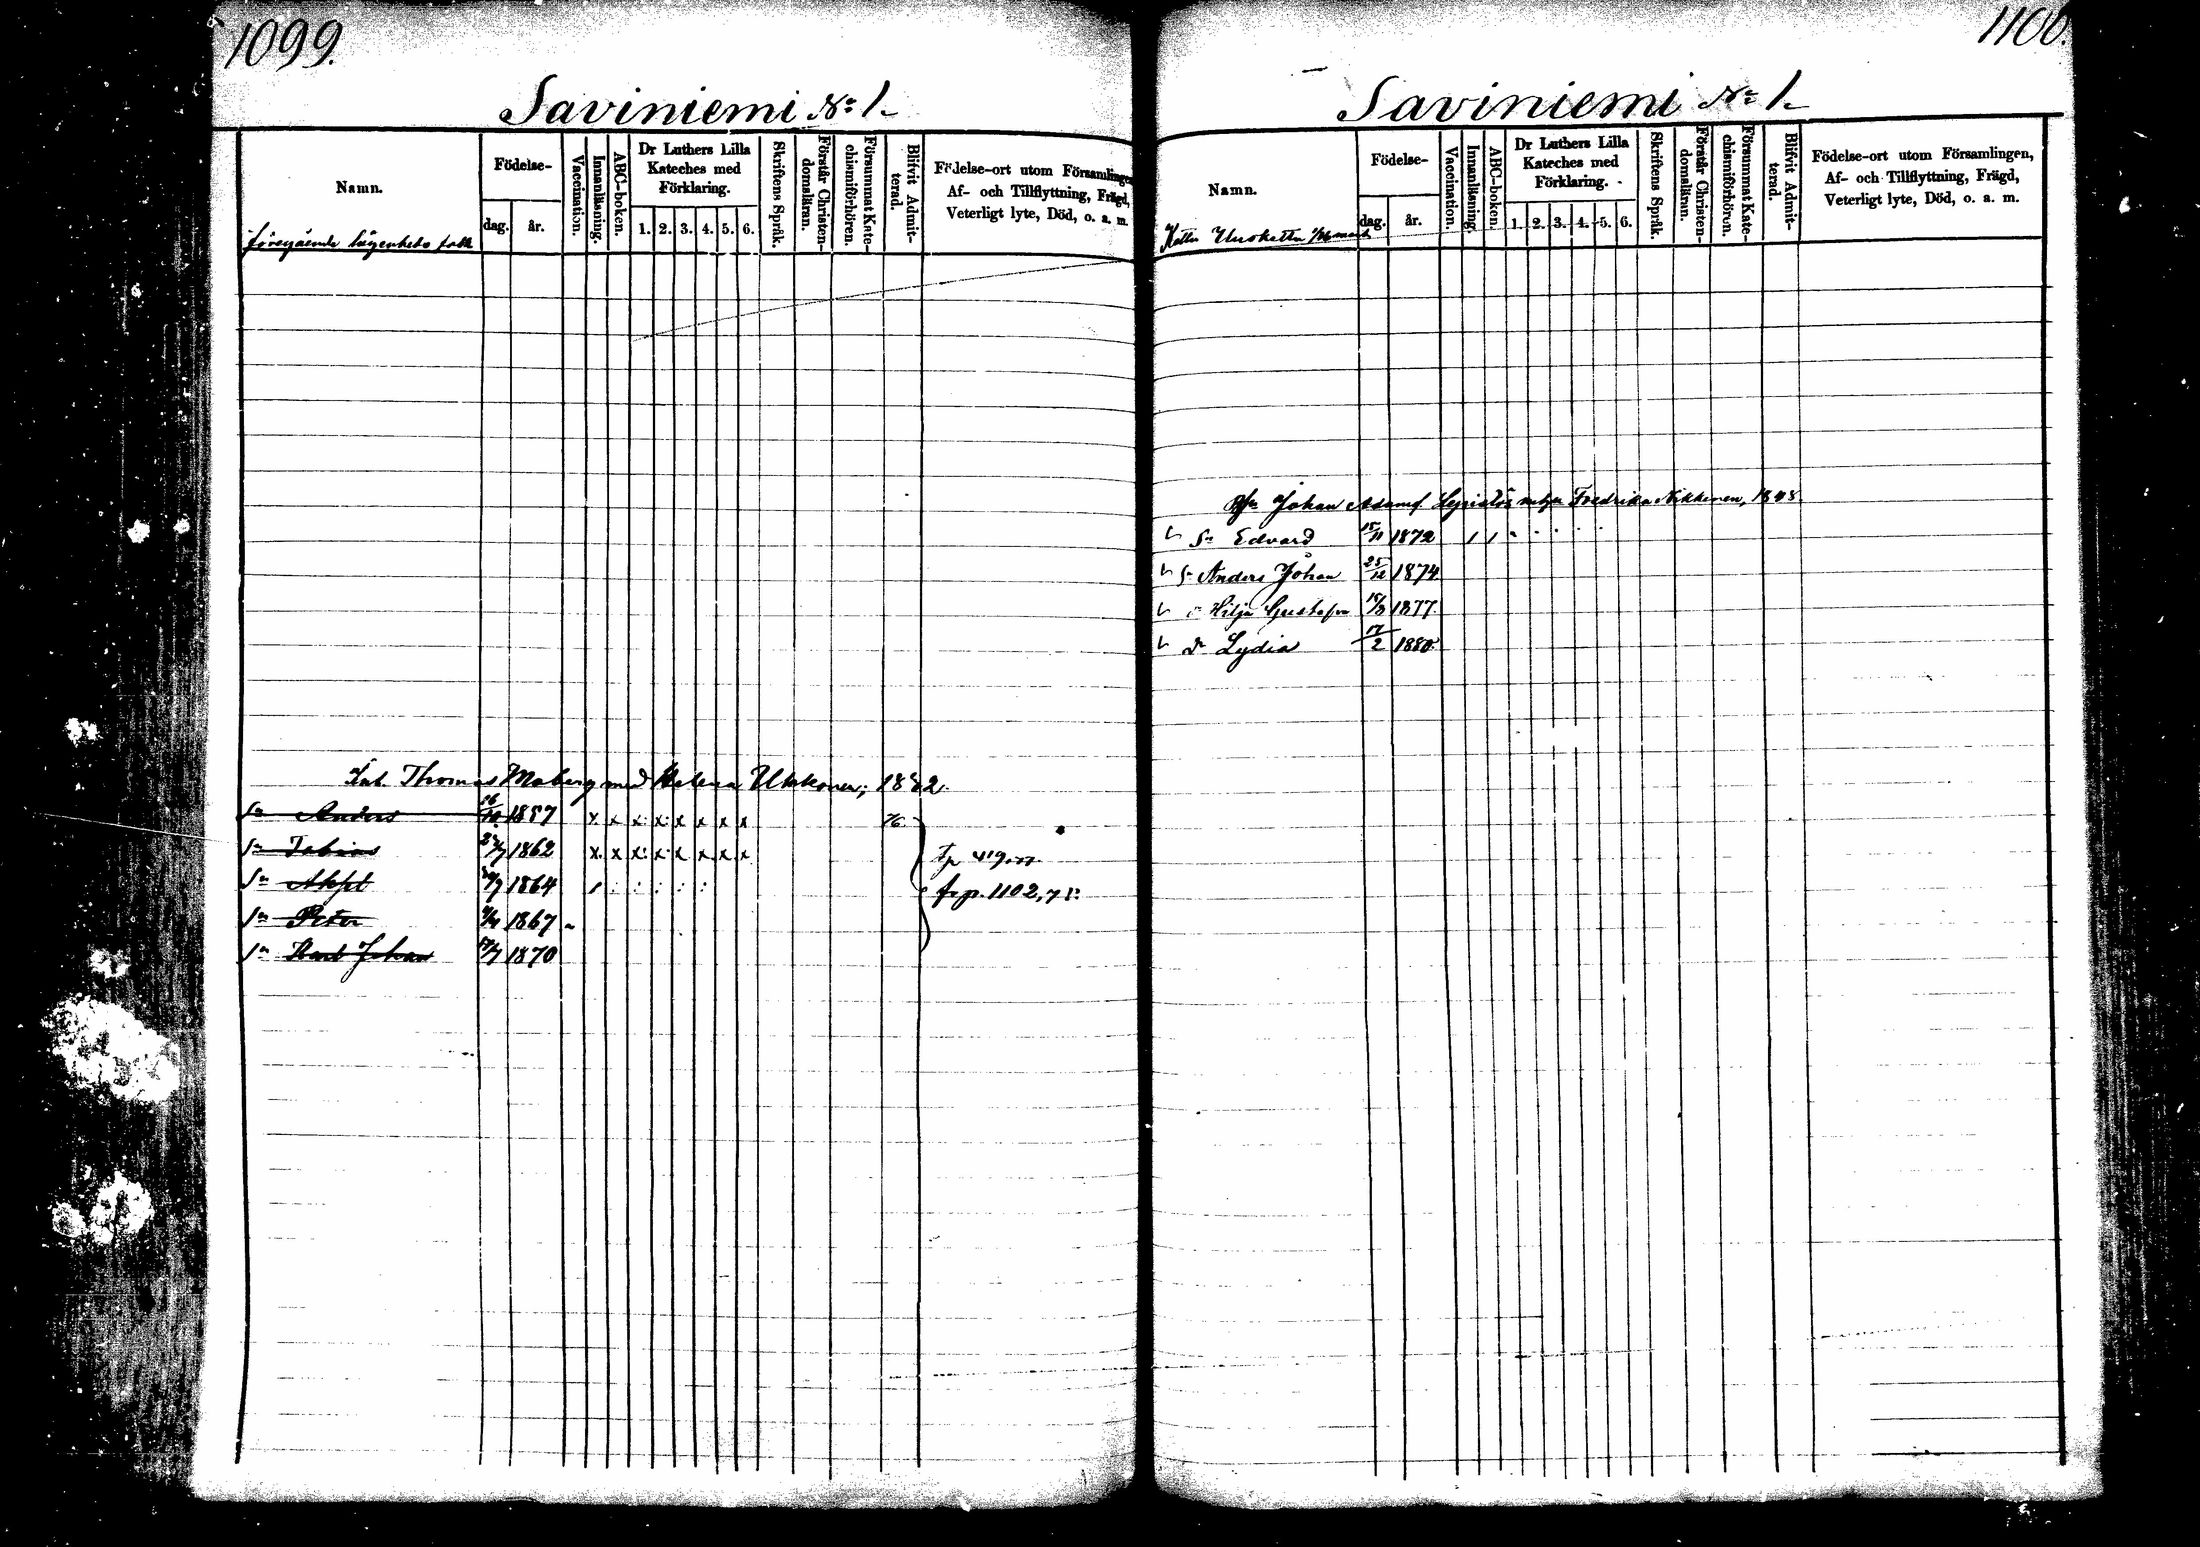 1099.
Saviniemi No 1.
Namn.
Födelse-
dag.
år.
Vaccination.
Innanläsning.
ABC-boken.
Dr Luthers Lilla
Kateches med
Förklaring.
1. 2. 3. 4. 5. 6.
Skriftens Språk.
Förstår Christen-
domsläran.
Försummat Kate-
chismiförhören.
Blifvit Admit-
terad.
Födelse-ort utom Församlingen,
Af- och Tillflyttning, Frägd,
Veterligt lyte, Död, o. a. m.
föregående lägenhets folk
Inh. Thomas Moberg med Helena Ukkonen, 1882.
Sn Anders 26/10 1857 x x x x x x x x 76.
Sn Tobias 1862 x x x x x x x x
Sn Axel 1864
fr p. 1102, 75
Sn Peter 1867
Sn Karl Johan 17/7 1870
1100.
Saviniemi No 1.
Namn.
Födelse-
dag.
år.
Vaccination.
Innanläsning.
ABC-boken.
Dr Luthers Lilla
Kateches med
Förklaring.
1. 2. 3. 4. 5. 6.
Skriftens Språk.
Förstår Christen-
domsläran.
Försummat Kate-
chismiförhören.
Blifvit Admit-
terad.
Födelse-ort utom Församlingen,
Af- och Tillflyttning, Frägd,
Veterligt lyte, Död, o. a. m.
Johan Adamsf. Fredrika Nikkinen, 1848
Sn Edvard 15/11 1872
S Anders Johan 25/12 1874
Hilja Gustafva 15/8 1877.
Dr Lydia 17/2 1880.